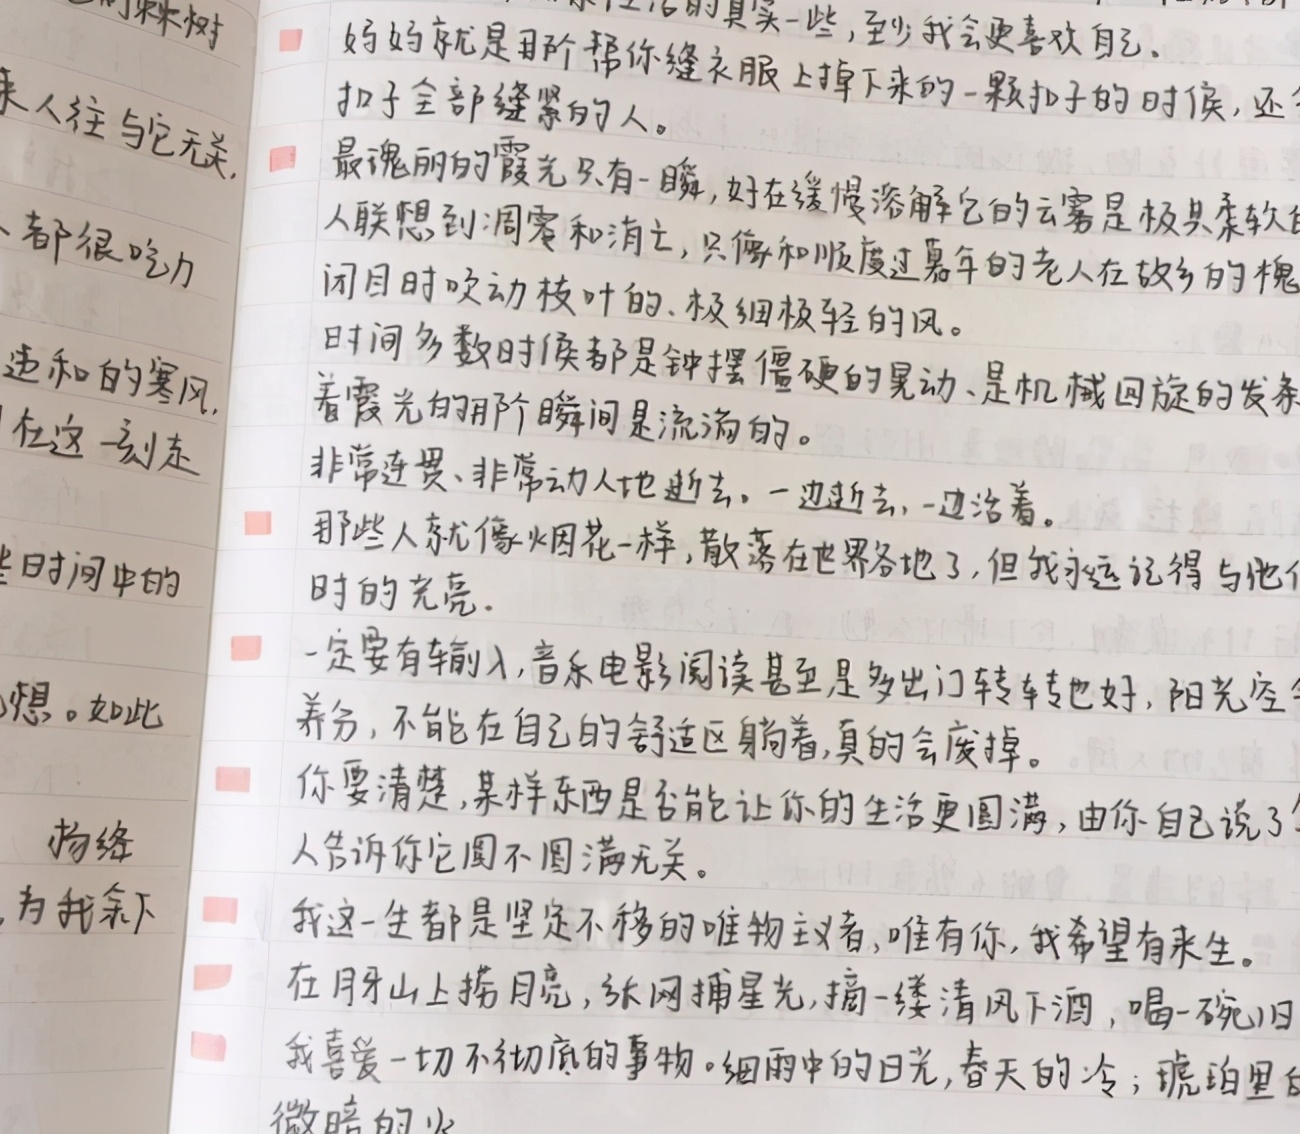 的秣树
来人往与它无关,
都很吃力
违和的寒风,
在这一刻走
些时间中的
想。如此
杨绛
为我余下
生活的真实一些,至少我会更喜欢自己.
妈妈就是那个帮你缝衣服上掉下来的一颗扣子的时侯,还
扣子全部缝紧的人。
最瑰丽的霞光只有一瞬,好在缓慢溶解它的云雾是极其柔软
人联想到凋零和消亡,只像和顺度过暮年的老人在故乡的槐
闭目时吹动枝叶的、极细极轻的风。
时间多数时侯都是钟摆僵硬的晃动、是机械回旋的发条
着霞光的那个瞬间是流淌的。
非常连贯、非常动人地逝去。一边逝去,一边活着。
那些人就像烟花一样,散落在世界各地了,但我永远记得与他
时的光亮.
一定要有输入,音乐电影阅读甚至是多出门转转也好,阳光空
养分,不能在自己的舒适区躺着,真的会废掉。
你要清楚,某样东西是否能让你的生活更圆满,由你自己说了
人告诉你它圆不圆满无关。
我这一生都是坚定不移的唯物主义者,唯有你,我希望有来生。
在月牙山上捞月亮,张网捕星光,摘一缕清风下酒,喝一碗旧
我喜爱一切不彻底的事物。细雨中的日光,春天的冷;琥珀里
微暗的火